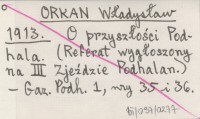 ORKAN Władysław
1913. O przyszłości Pod-
hala. (Referat wygłoszony
na III Zjeździe Podhalan.)
– Gaz. Podh. 1, nry 35 i 36.